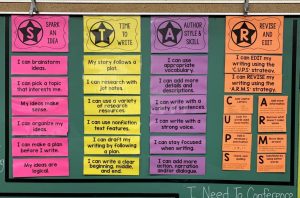 SPARK
AN
IDEA
S
I can brainstorm
ideas.
I can pick a topic
that interests me.
My ideas make
sense.
I can organize my
ideas.
I can make a plan
before I write.
My ideas are
logical.
TIME
TO
WRITE
T
My story follows a
plan.
I can research with
jot notes.
I can use a variety of
resources.
I can use nonfiction
text features.
I can draft my
writing by following a
plan.
I can write a clear
beginning, middle,
and end.
AUTHOR
STYLE &
SKILL
A
I can use
appropriate
vocabulary.
I can add more
details and
descriptions.
I can write with a
variety of sentences.
I can write with a
strong voice.
I can stay focused
when writing.
I can add more
action, narration
and/or dialogue.
REVISE
AND
EDIT
R
I can EDIT my
writing using the
C.U.P.S. strategy.
I can REVISE my
writing using the
A.R.M.S. strategy.
C A
U R
P M
S S
I Need To Conference